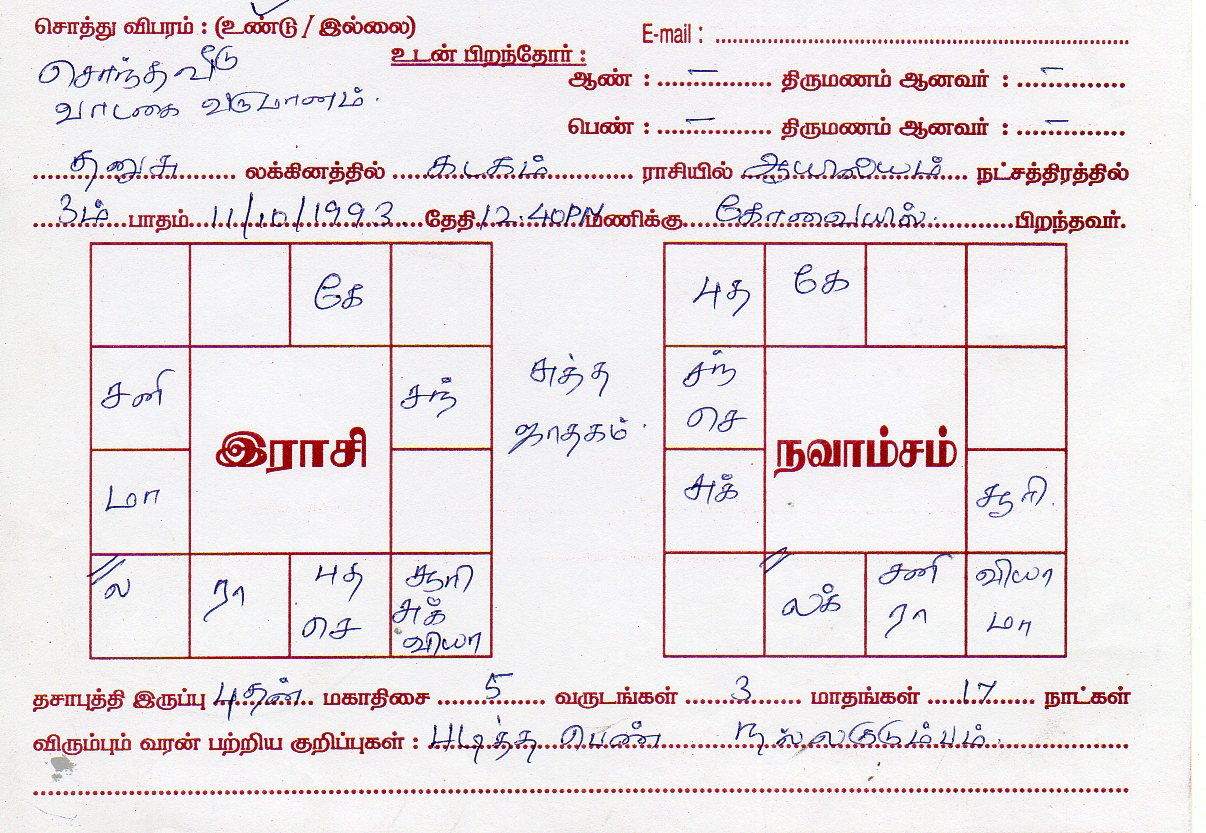 சொத்து விபரம் : (உண்டு / இல்லை)
E-mail : ..........
சொந்த வீடு
வாடகை வருமானம்.
உடன் பிறந்தோர் :
ஆண் : ..... – ..... திருமணம் ஆனவர் : ..... – .....
பெண் : ..... – ..... திருமணம் ஆனவர் : ..... – .....
தனுசு லக்கினத்தில் கடகம் ராசியில் ஆயில்யம் நட்சத்திரத்தில்
3ம் பாதம் 11/10/1993 தேதி 12.40PM மணிக்கு கோவையில் பிறந்தவர்.
கே
சனி சந்
இராசி
மா
ல ரா
புத
செ
சூரி
சுக்
வியா
சுத்த
ஜாதகம்.
புத கே
சந்
செ
நவாம்சம்
சுக் சூரி.
லக்
சனி
ரா
வியா
மா
தசாபுத்தி இருப்பு புதன் மகாதிசை 5 வருடங்கள் 3 மாதங்கள் 17 நாட்கள்
விரும்பும் வரன் பற்றிய குறிப்புகள் : படித்த பெண் நல்லகுடும்பம்.